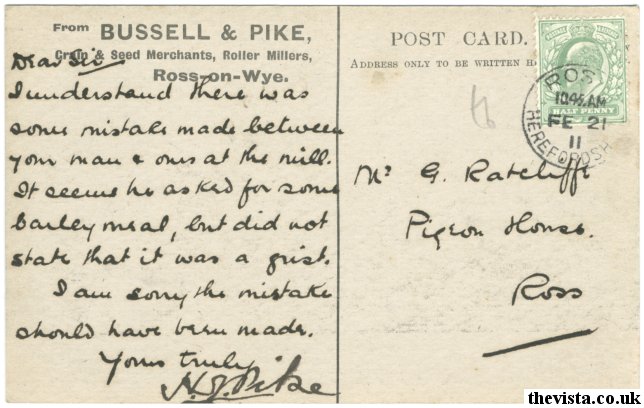 From BUSSELL & PIKE,
Grain & Seed Merchants, Roller Millers,
Ross-on-Wye.
Dear Sir
I understand there was
some mistake made between
your man & ours at the mill.
It seems he asked for some
barley meal, but did not
state that it was a grist.
I am sorry the mistake
should have been made.
Yours truly
H. J. Pike
POST CARD.
ADDRESS ONLY TO BE WRITTEN
HALF PENNY
ROSS
10.45 AM
FE 21
11
HEREFORDSH
Mr G. Ratcliffe
Pigeon House.
Ross
thevista.co.uk